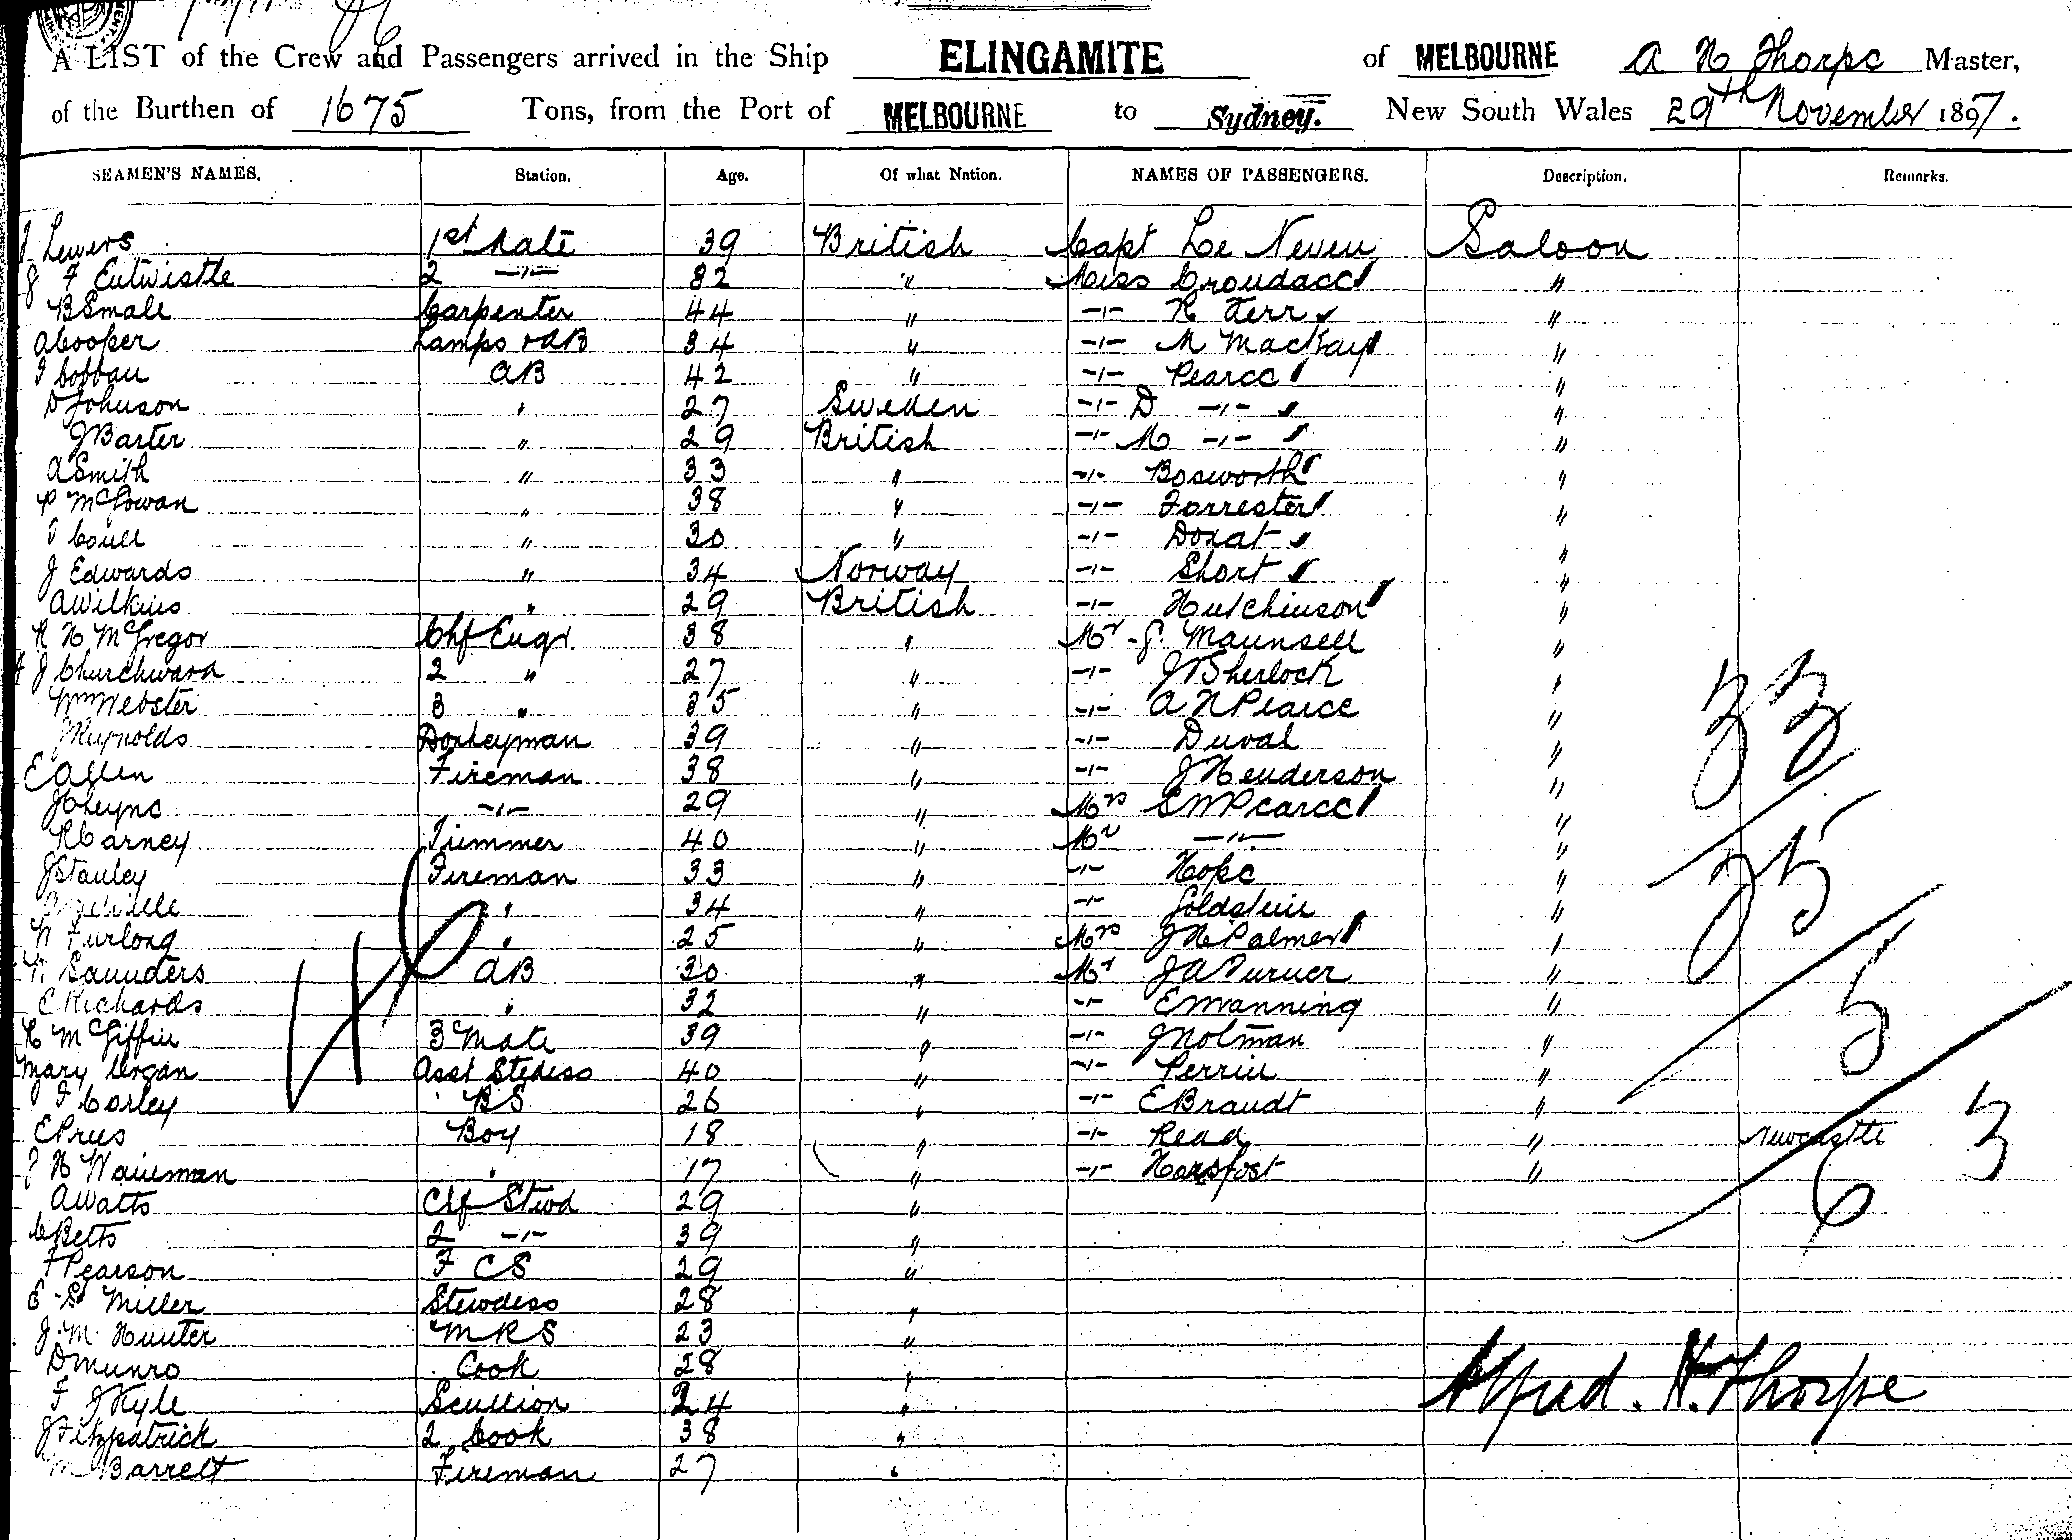 A LIST of the Crew and Passengers arrived in the Ship ELINGAMITE of MELBOURNE A H Thorpe Master,
of the Burthen of 1675 Tons, from the Port of MELBOURNE to Sydney. New South Wales 29th November 1897.
SEAMEN'S NAMES. Station. Age. Of what Nation. NAMES OF PASSENGERS. Description. Remarks.
Lewers 1st Mate 39 British Capt Le Neveu Saloon
J F Entwistle 2 -"- 32 " Miss Croudace "
B Small Carpenter 44 " -"- H Kerr "
A Cooper Lamps & AB 34 " -"- M MacKay "
AB 42 " -"- Pearce "
D Johnson " 27 Sweden -"- D -"- "
J Barter " 29 British -"- M -"- "
A Smith " 33 " -"- Bosworth "
P McGowan " 38 " -"- Forrester "
T Coull " 30 " -"- Doxat "
J Edwards " 34 Norway -"- Short "
A Wilkins " 29 British -"- Hutchinson "
R H McGregor Chf Engr. 38 " Mr G. Maunsell "
J Churchward 2 " 27 " -"- J Sherlock "
Wm Webster 3 " 35 " -"- A H Pearce "
Reynolds Donkeyman 39 " -"- Duval "
E Allen Fireman 38 " -"- J Henderson "
J Cheyne -"- 29 " Mrs E M Pearce "
R Carney Trimmer 40 " Mr -"- "
J Stanley Fireman 33 " -"- Hope "
" 34 " -"- Goldstein "
N Furlong " 25 " Mrs J H Palmer "
Saunders AB 30 " Mr J A Turner "
C Richards " 32 " -"- E Manning "
R McGiffin 3 Mate 39 " -"- J Holman "
Mary Hogan Asst Stedess 40 " -"- Perrin "
J F Corley BS 26 " -"- E Brandt "
E Prus Boy 18 " -"- Read " Newcastle
H Waineman " 17 " -"- "
A Watts Chf Stwd 29 "
C Betts 2 -"- 39 "
F Pearson F CS 29 "
E S Miller Stewdess 28 "
J. M. Hunter MRS 23 "
D Munro Cook 28 "
F J Kyle Scullion 24 "
J Fitzpatrick 2 Cook 38 "
M Barrett Fireman 27 "
33
25
5
3
6
Alfred. H. Thorpe